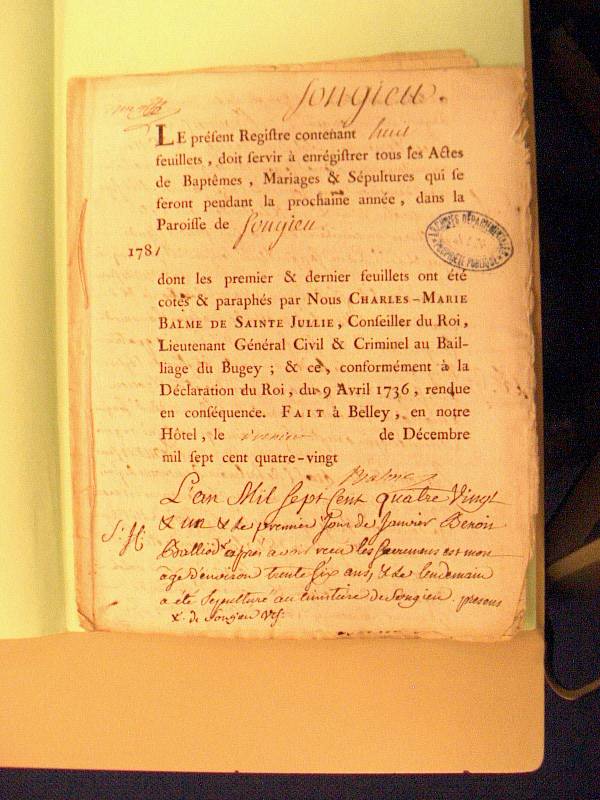 Songieu.
LE présent Registre contenant huit
feuillets, doit servir à enrégistrer tous les Actes
de Baptêmes, Mariages & Sépultures qui se
feront pendant la prochaine année, dans la
Paroisse de Songieu
1781
dont les premier & dernier feuillets ont été
cotés & paraphés par Nous CHARLES-MARIE
BALME DE SAINTE JULLIE, Conseiller du Roi,
Lieutenant Général Civil & Criminel au Bail-
liage du Bugey ; & ce, conformément à la
Déclaration du Roi, du 9 Avril 1736, rendue
en conséquence. FAIT à Belley, en notre
Hôtel, le premier de Décembre
mil sept cent quatre-vingt
Balme
L'an Mil Sept Cent quatre Vingt
& un & le premier Jour de Janvier Benoit
Balliod après avoir reçu les Sacremens est mort
agé d'environ trente six ans, & le lendemain
a été Sepulturé au cimetiere de Songieu presens
de Songieu
S. H.
ARCHIVES DÉPARTEMENTALES
PROPRIÉTÉ PUBLIQUE